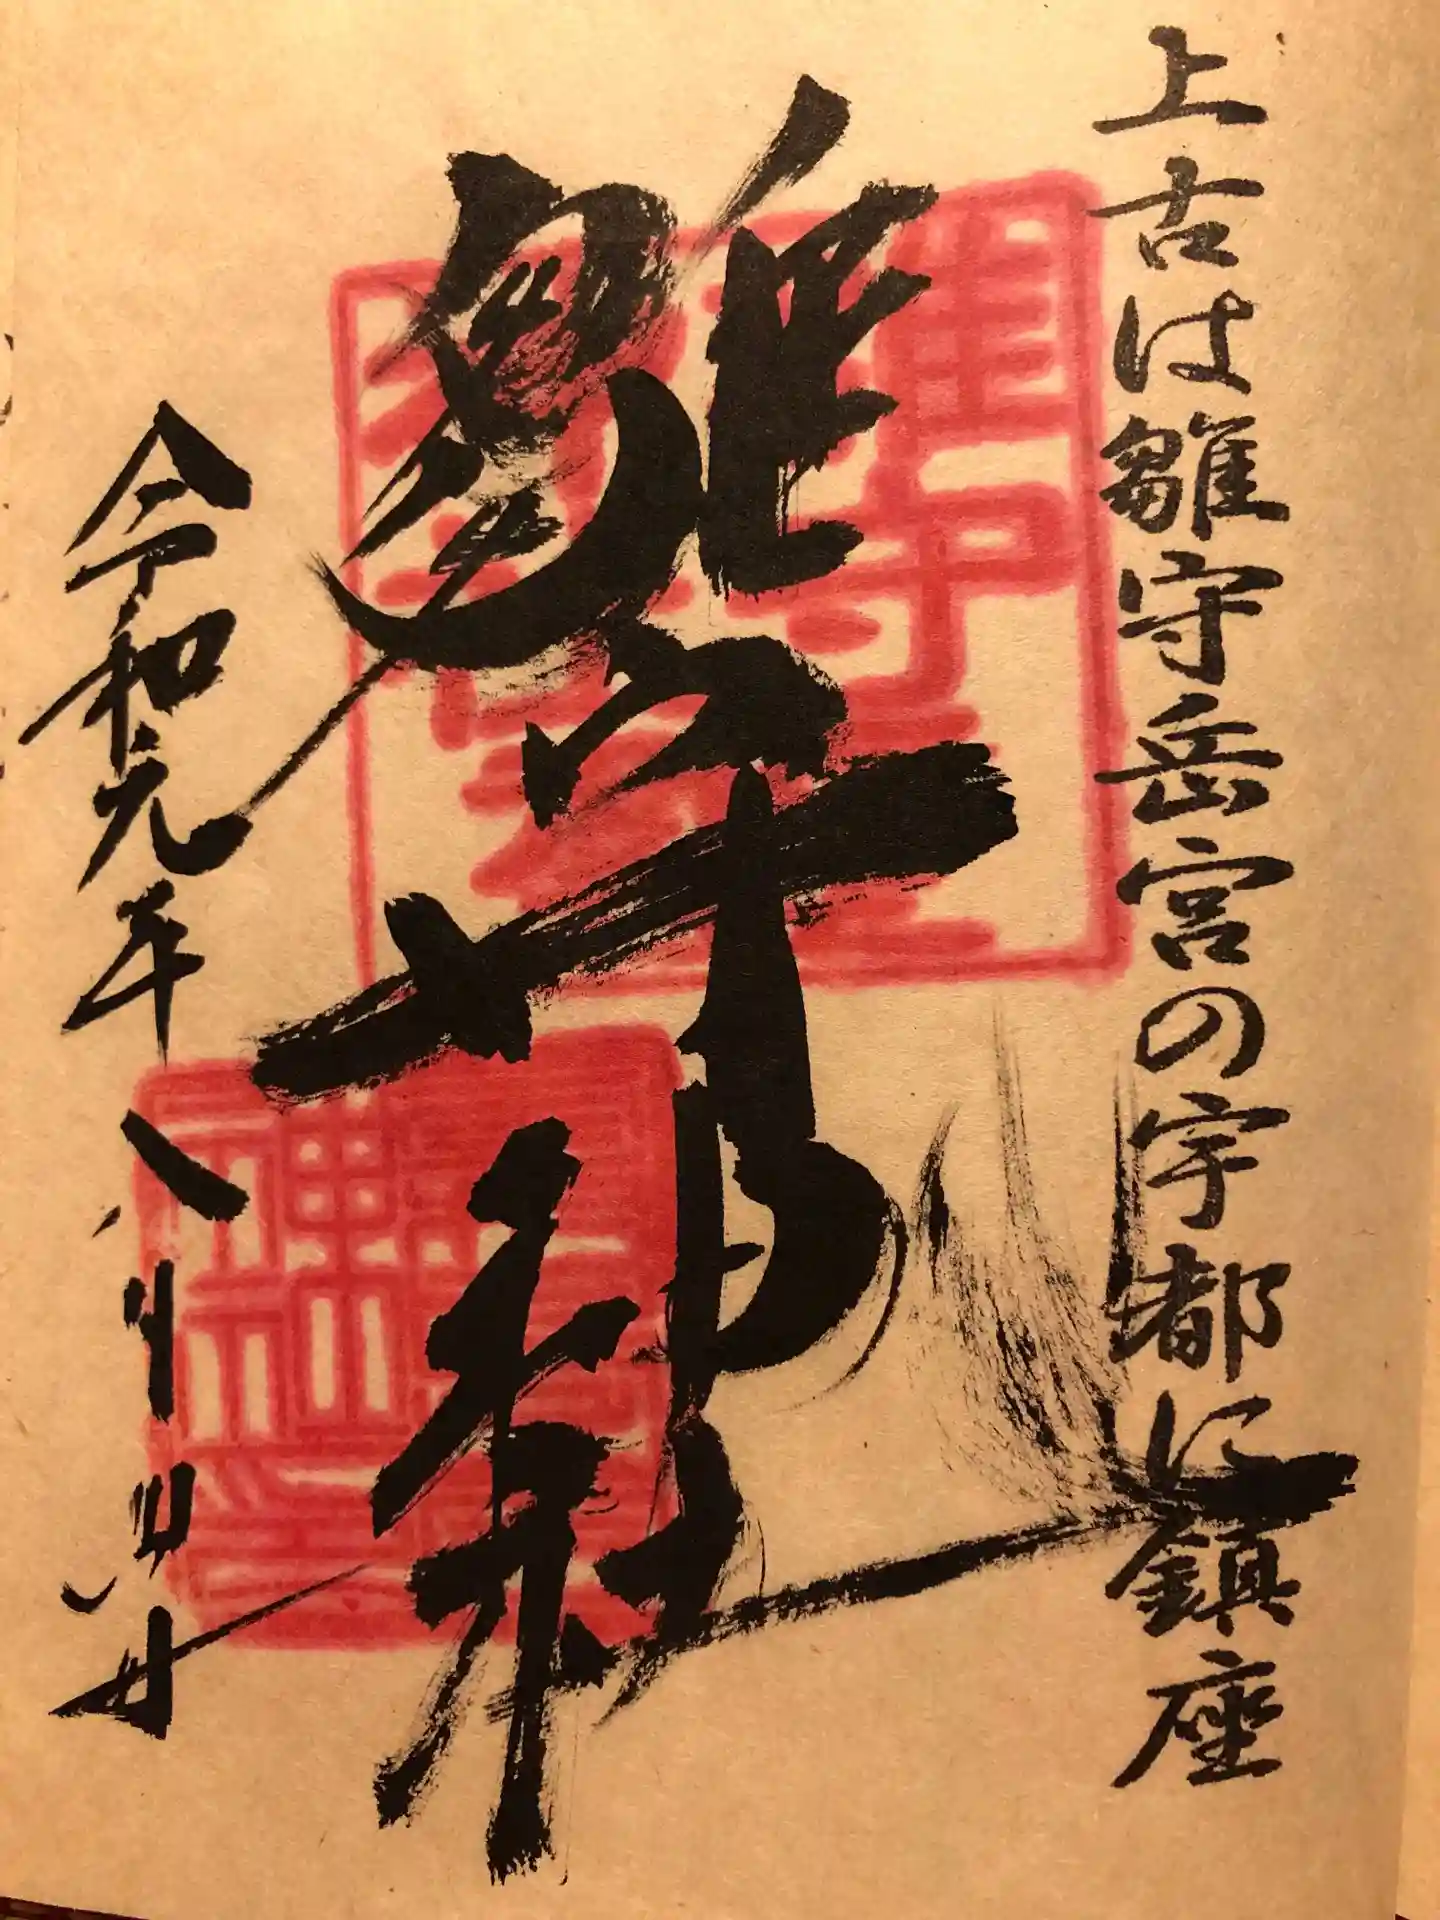 上古は雛守岳宮の宇都に鎮座
雛守神社
令和元年八月四日